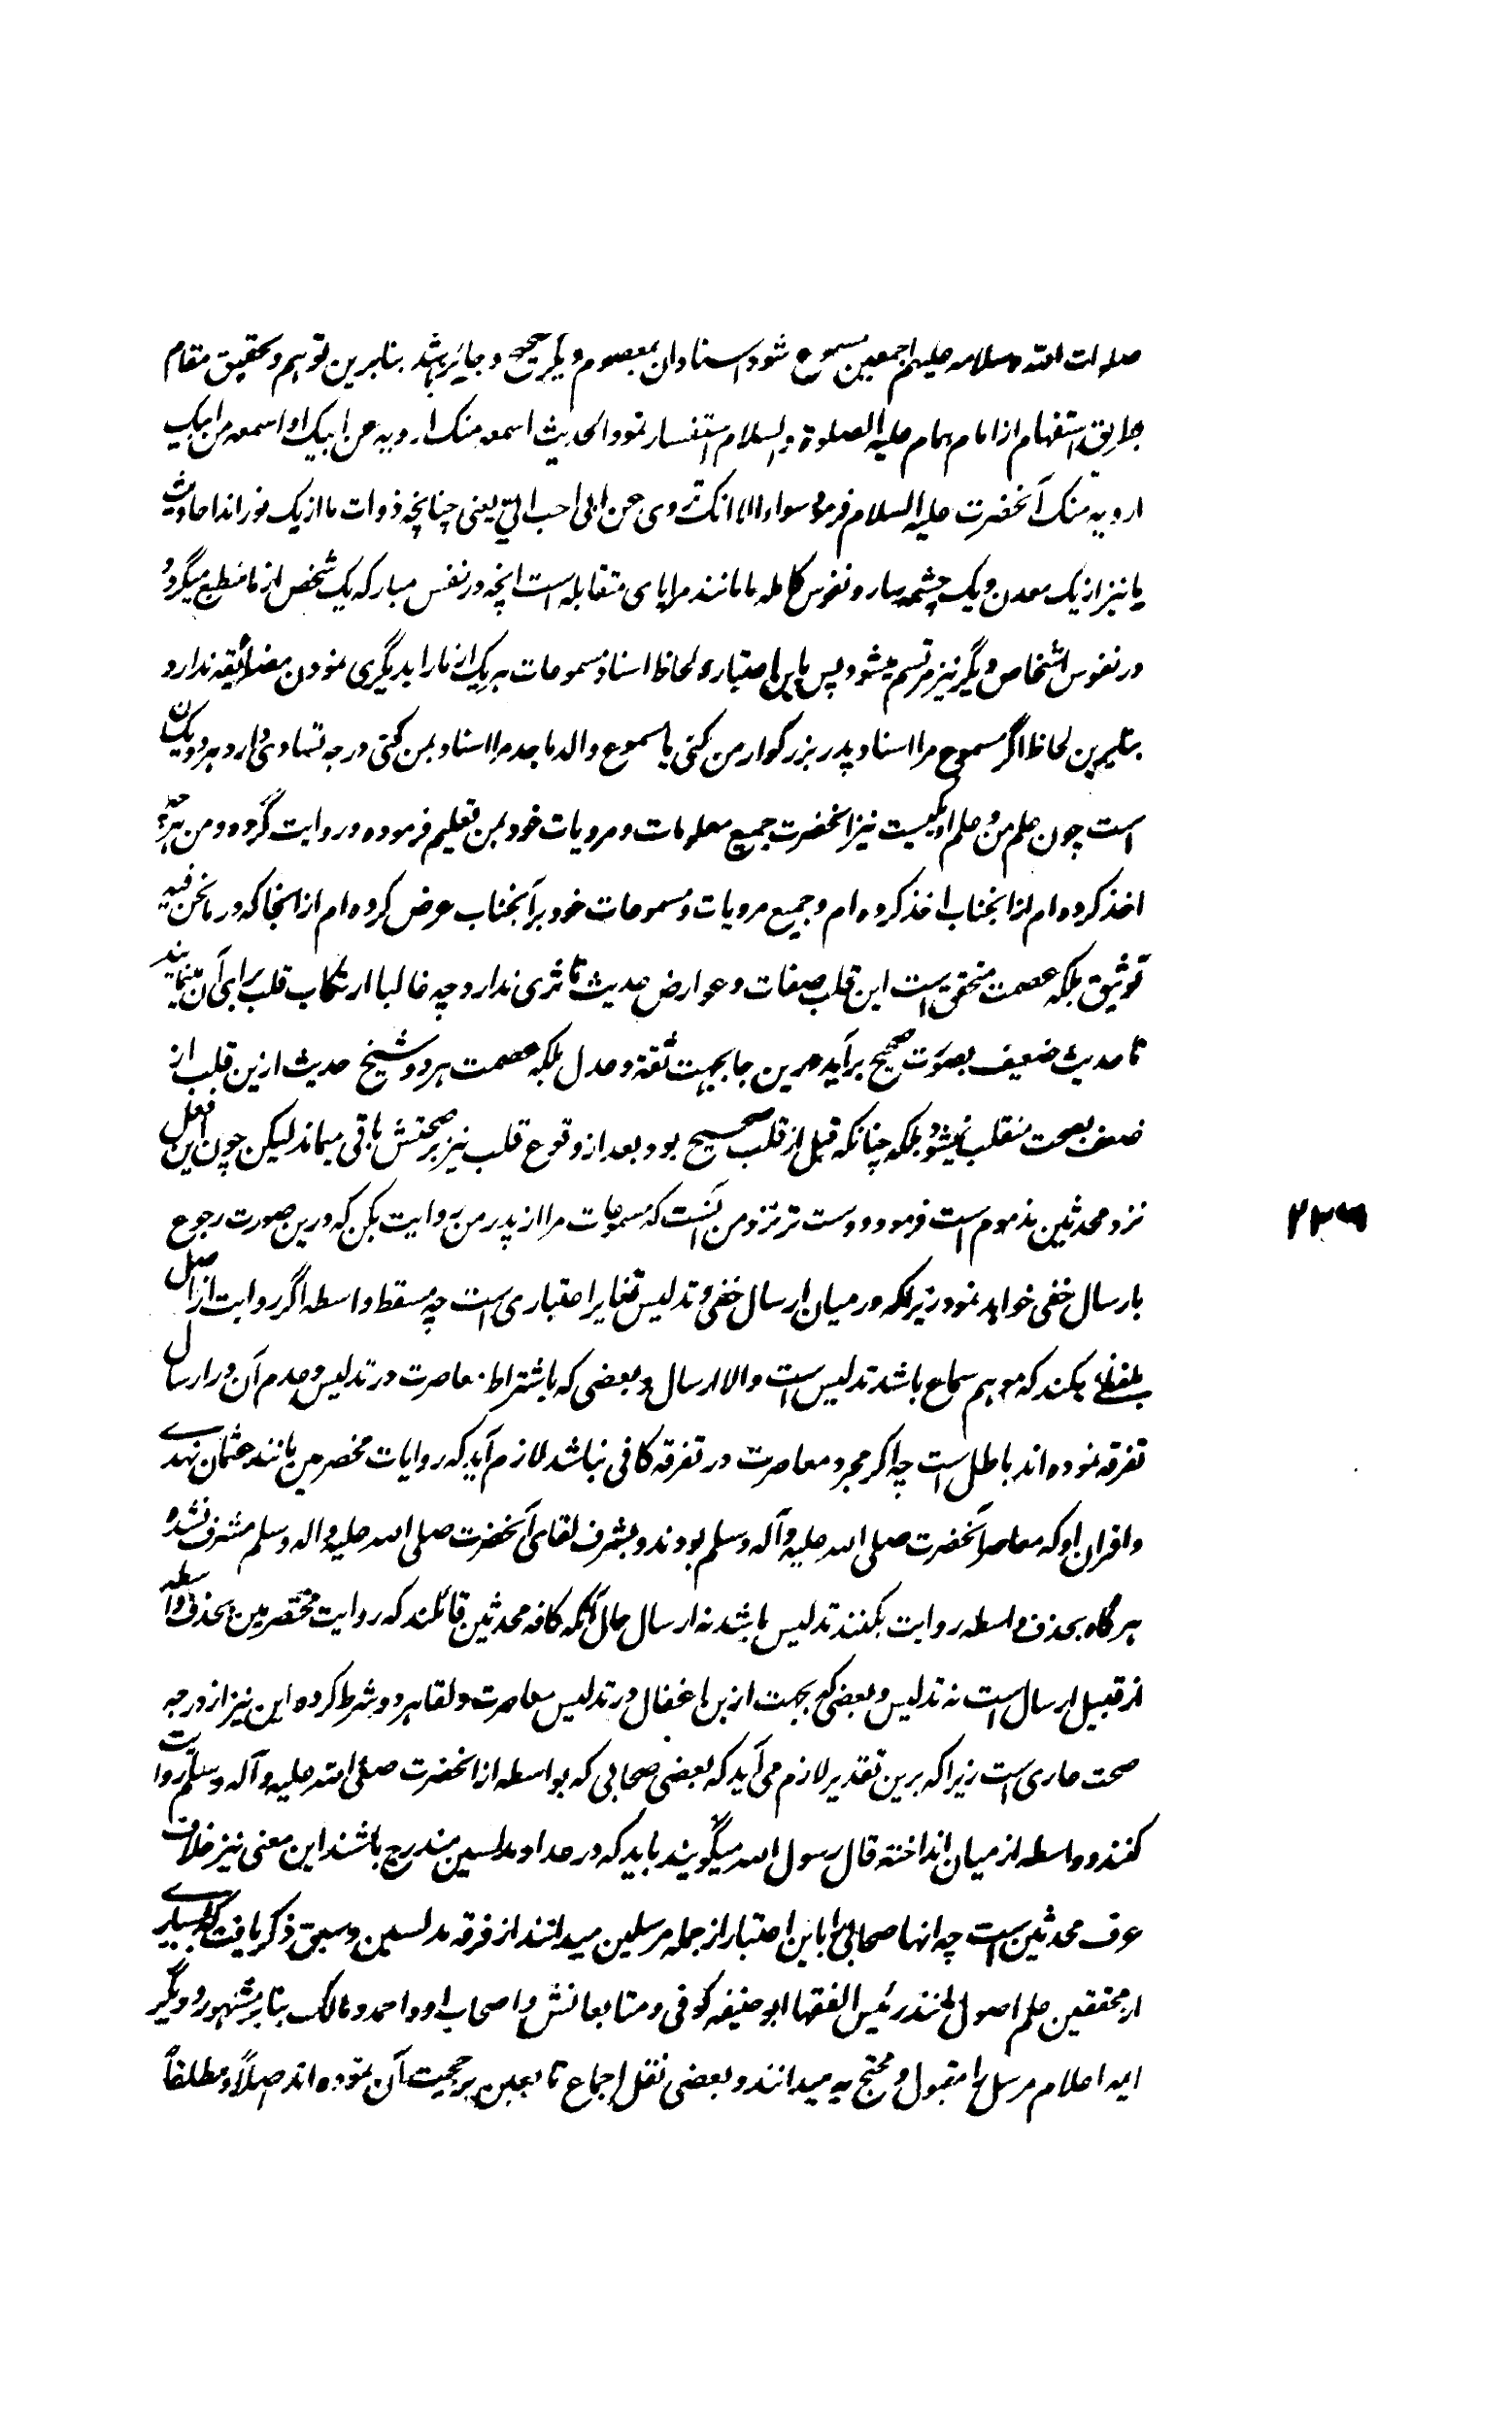 صلوات الله وسلامه علیهم اجمعین مسموع شود اسناد آن بمعصوم دیگر صحیح و جایز باشد بنابرین توهم و تحقیق مقام
بطریق استفهام از امام همام علیه الصلوة والسلام استفسار نمود الحدیث اسمعه منک ارویه عن ابیک او اسمعه من ابیک
ارویه منک آنحضرت علیه السلام فرمود سواء الا انک تروی عن ابی احب الیّ یعنی چنانچه ذوات ما از یک نوراند احادیث
ما نیز از یک معدن و یک چشمه سار و نفوس کامله ما مانند مرایای متقابله است انچه در نفس مبارکه یک شخص از ما منطبع میگردد
در نفوس اشخاص دیگر نیز مرتسم میشود پس باین اعتبار و لحاظ اسناد مسموعات هر یک از ما را بدیگری نمودن مضائقه ندارد
بنابرین لحاظ اگر مسموع مرا اسناد پدر بزرگوار من کنی یا مسموع والد ماجد مرا اسناد بمن کنی درجه تساوی دارد هر دو یکسان
است چون علم من و علم او یکیست نیز آنحضرت جمیع معلومات و مرویات خود بمن تعلیم فرموده و روایت کرده و من هرچه
اخذ کرده ام از انجناب اخذ کرده ام و جمیع مرویات و مسموعات خود بر آنجناب عرض کرده ام از انجا که در ما نحن فیه
توثیق بلکه عصمت متحقق است این قلب صفات و عوارض حدیث تاثری ندارد چه غالبا ارتکاب قلب برای آن مینمایند
تا حدیث ضعیف بصورت صحیح برآید درین جا بجهت ثقه و عدل بلکه عصمت هر دو شیخ حدیث ازین قلب از
ضعف بصحت منقلب نمیشود بلکه چنانکه قبل از قلب صحیح بود بعد از وقوع قلب نیز بر صحتش باقی میماند لیکن چون این فعل
نزد محدثین مذموم است فرمود دوست تر نزد من آنست که مسموعات مرا از پدر من روایت بکن که درین صورت رجوع
بارسال خفی خواهد نمود زیراکه در میان ارسال خفی و تدلیس تغایر اعتباری است چه مسقط واسطه اگر روایت از اصل
بلفظی بکند که موهم سماع باشد تدلیس است والا ارسال و بعضی که باشتراط معاصرت در تدلیس و عدم آن در ارسال
تفرقه نموده اند باطل است چه اگر مجرد معاصرت در تفرقه کافی نباشد لازم آید که روایات مخضرمین مانند عثمان نهدی
و اقران او که معاصر آنحضرت صلی الله علیه و آله وسلم بودند و بشرف لقای آنحضرت صلی الله علیه و اله وسلم مشرف نشدند
هر گاه بحذف واسطه روایت بکنند تدلیس باشد نه ارسال حال آنکه کافه محدثین قائلند که روایت مخضرمین بحذف واسطه
از قبیل ارسال است نه تدلیس و بعضی که بجهت ازین اغفال در تدلیس معاصرت و لقا هر دو شرط کرده این نیز از درجه
صحت عاری است زیراکه برین تقدیر لازم می آید که بعضی صحابی که بواسطه از آنحضرت صلی الله علیه و آله وسلم روایت
کنند و واسطه از میان انداخته قال رسول الله میگویند باید که در عداد مدلسین مندرج باشند این معنی نیز خلاف
عرف محدثین است چه انها صحابی را باین اعتبار از جمله مرسلین میدانند از فرقه مدلسین و سبق ذکر یافت که بسیاری
از محققین علم اصول مانند رئیس الفقها ابو حنیفه کوفی و متابعانش و اصحاب او و احمد و مالک بنا بر مشهور و دیگر
ایمه اعلام مرسل را مقبول و محتج به میدانند و بعضی نقل اجماع تابعین بر حجیت آن نموده اند اصلاً و مطلقاً
۲۳۶